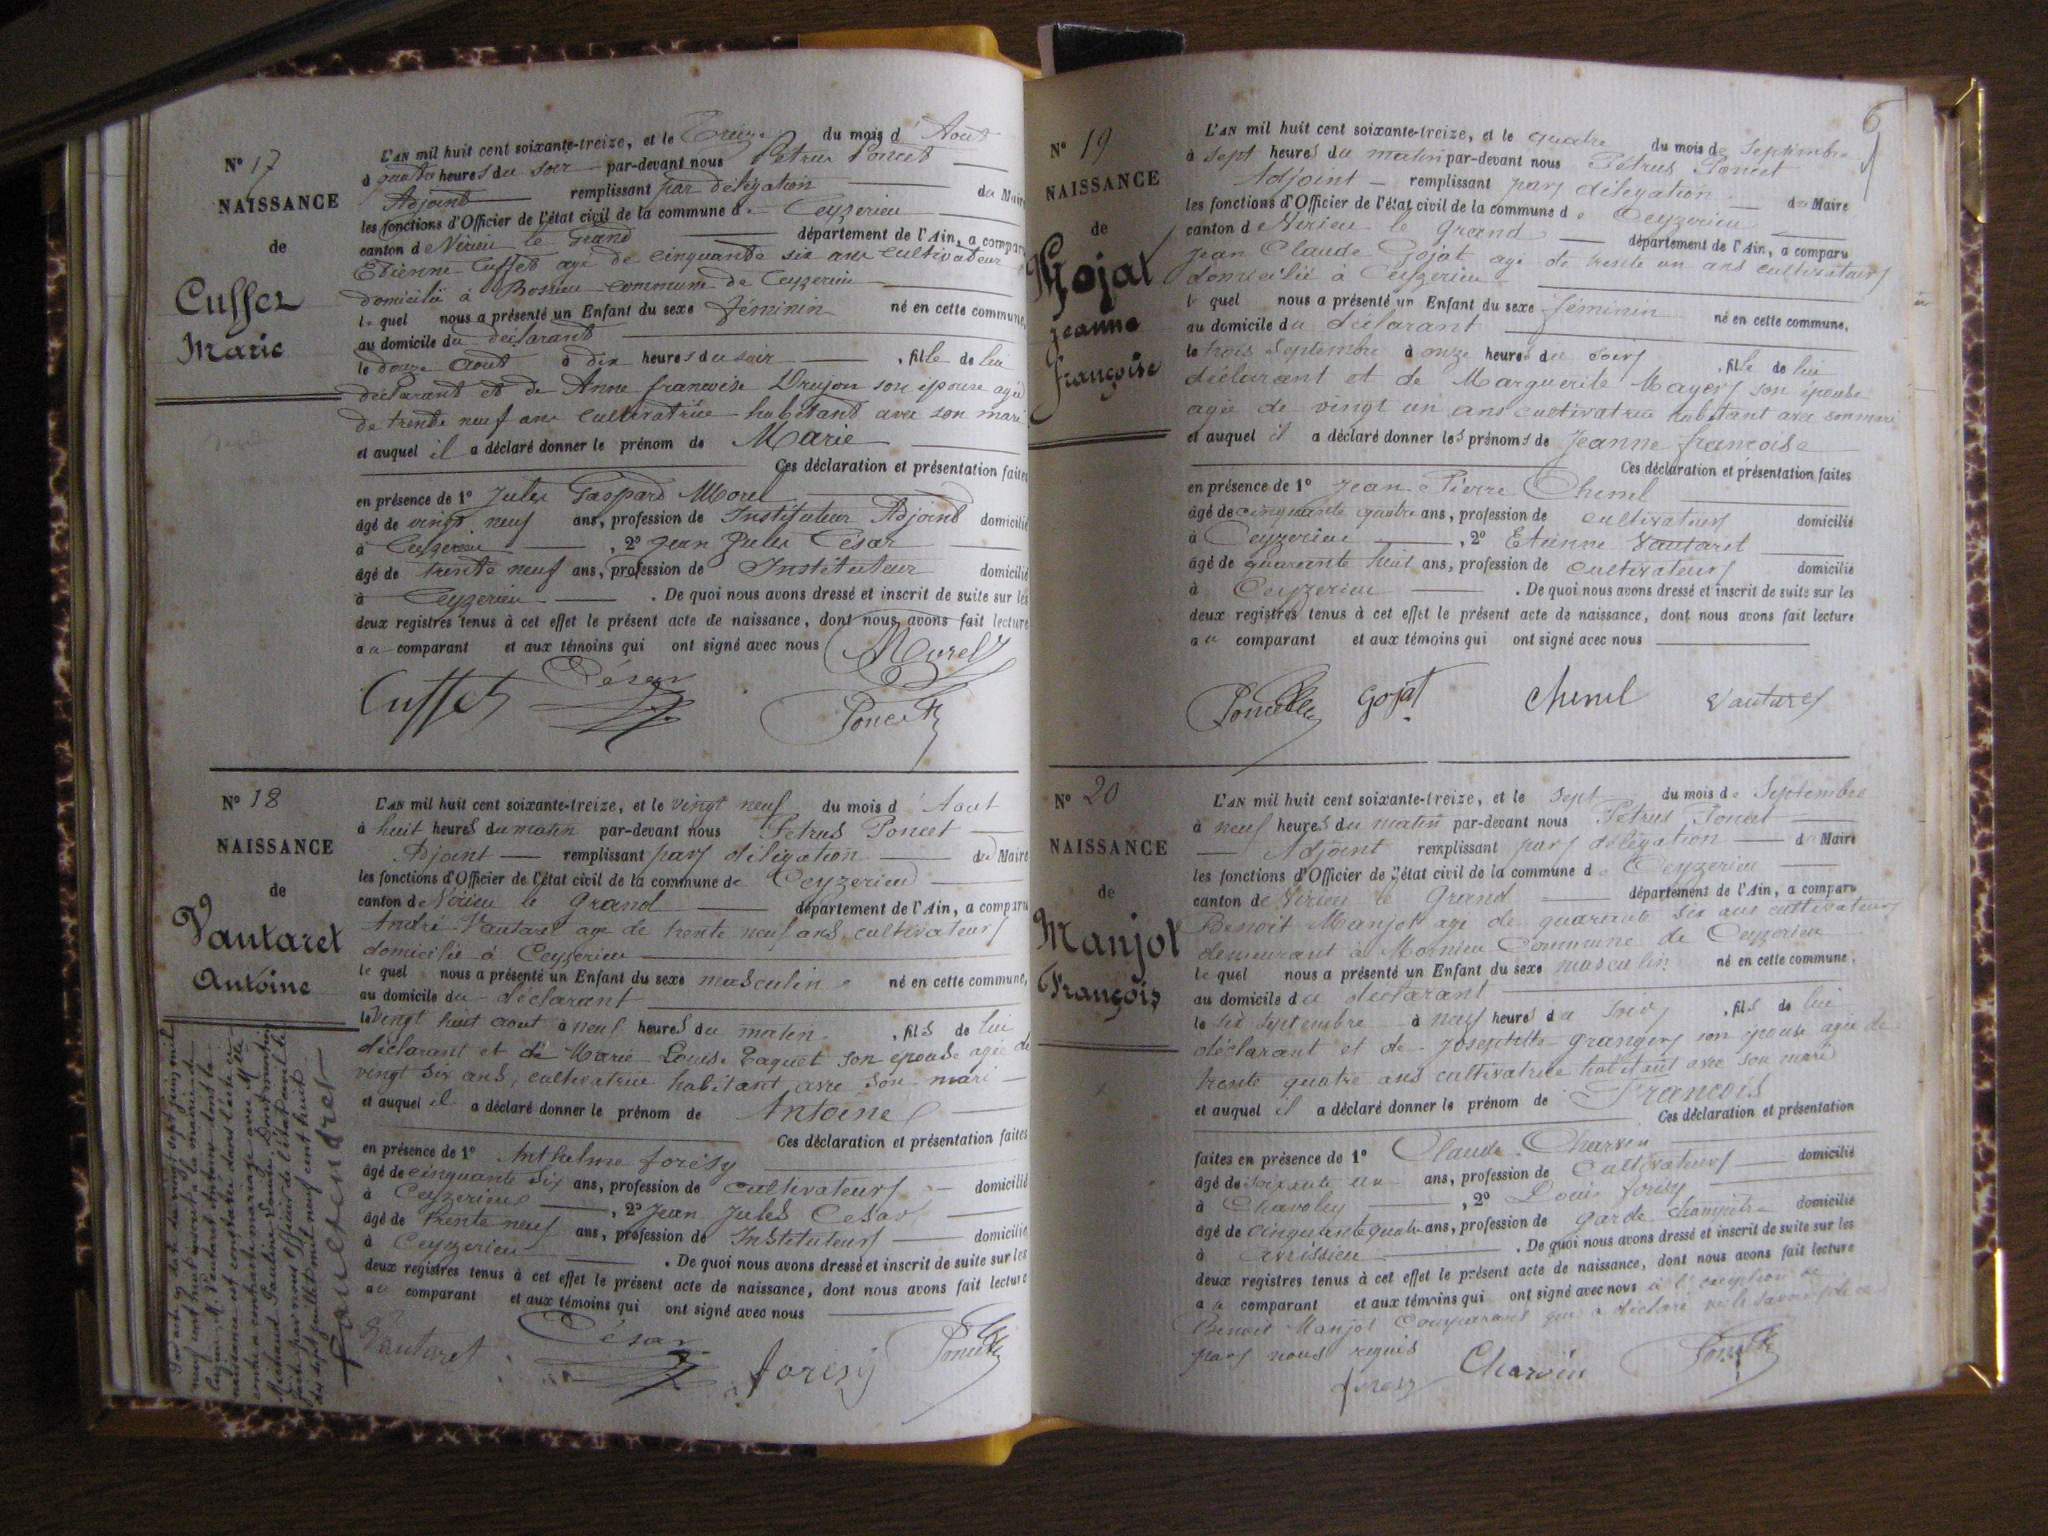 N° 17
NAISSANCE
de
Cuffet
Marie
L'AN mil huit cent soixante-treize, et le treize du mois d'Aout
à quatre heures du soir par-devant nous Petrus Poncet
Adjoint remplissant par délégation du Maire
les fonctions d'Officier de l'état civil de la commune de Ceyzerieu
canton de Virieu le Grand département de l'Ain, a comparu
Etienne Cuffet agé de cinquante six ans cultivateur
domicilié à commune de Ceyzerieu
lequel nous a présenté un Enfant du sexe féminin né en cette commune,
au domicile du déclarant
le douze aout à dix heures du soir, fille de lui
déclarant et de Anne françoise Drujon son épouse agée
de trente neuf ans cultivatrice habitant avec son mari
et auquel il a déclaré donner le prénom de Marie
Ces déclaration et présentation faites
en présence de 1° Jules Gaspard Morel
âgé de vingt neuf ans, profession de Instituteur Adjoint domicilié
à Ceyzerieu, 2° Jean Jules César
âgé de trente neuf ans, profession de Instituteur domicilié
à Ceyzerieu. De quoi nous avons dressé et inscrit de suite sur les
deux registres tenus à cet effet le présent acte de naissance, dont nous avons fait lecture
au comparant et aux témoins qui ont signé avec nous
Morel
Cuffet César Poncet
N° 18
NAISSANCE
de
Vautaret
Antoine
L'AN mil huit cent soixante-treize, et le vingt neuf du mois d'Aout
à huit heures du matin par-devant nous Petrus Poncet
Adjoint remplissant par délégation du Maire
les fonctions d'Officier de l'état civil de la commune de Ceyzerieu
canton de Virieu le Grand département de l'Ain, a comparu
André Vautaret age de trente neuf ans cultivateur
domicilié à Ceyzerieu
lequel nous a présenté un Enfant du sexe masculin né en cette commune,
au domicile du déclarant
le vingt huit aout à neuf heures du matin, fils de lui
déclarant et de Marie Louise Paquet son épouse agée de
vingt six ans, cultivatrice habitant avec son mari
et auquel il a déclaré donner le prénom de Antoine
Ces déclaration et présentation faites
en présence de 1° Anthelme forésy
âgé de cinquante six ans, profession de cultivateur domicilié
à Ceyzerieu, 2° Jean Jules César
âgé de trente neuf ans, profession de Instituteur domicilié
à Ceyzerieu. De quoi nous avons dressé et inscrit de suite sur les
deux registres tenus à cet effet le présent acte de naissance, dont nous avons fait lecture
au comparant et aux témoins qui ont signé avec nous
Vautaret César forésy Poncet
Par acte en date du vingt sept juin mil
neuf cent huit la mairie de
M. Vautaret Antoine dont la
naissance est constatée dans l'acte ci-
contre a contracté mariage avec Mlle
Michaud Pauline Louise
fait par nous Officier de l'état civil le
dix sept juillet mil neuf cent huit
N° 19
NAISSANCE
de
Gojat
Jeanne
françoise
6
L'AN mil huit cent soixante-treize, et le quatre du mois de Septembre
à sept heures du matin par-devant nous Petrus Poncet
Adjoint remplissant par délégation du Maire
les fonctions d'Officier de l'état civil de la commune de Ceyzerieu
canton de Virieu le Grand département de l'Ain, a comparu
Jean Claude Gojat age de trente un ans cultivateur
domicilié à Ceyzerieu
lequel nous a présenté un Enfant du sexe féminin né en cette commune,
au domicile du déclarant
le trois Septembre à onze heures du soir, fille de lui
déclarant et de Marguerite Mayer son épouse
agée de vingt un ans cultivatrice habitant avec son mari
et auquel il a déclaré donner les prénoms de Jeanne françoise
Ces déclaration et présentation faites
en présence de 1° Jean Pierre Chenel
âgé de cinquante quatre ans, profession de cultivateur domicilié
à Ceyzerieu, 2° Etienne Vautaret
âgé de quarante huit ans, profession de cultivateur domicilié
à Ceyzerieu. De quoi nous avons dressé et inscrit de suite sur les
deux registres tenus à cet effet le présent acte de naissance, dont nous avons fait lecture
au comparant et aux témoins qui ont signé avec nous
Poncet Gojat Chenel Vautaret
N° 20
NAISSANCE
de
Manjot
François
L'AN mil huit cent soixante-treize, et le sept du mois de Septembre
à neuf heures du matin par-devant nous Petrus Poncet
Adjoint remplissant par délégation du Maire
les fonctions d'Officier de l'état civil de la commune de Ceyzerieu
canton de Virieu le Grand département de l'Ain, a comparu
Benoit Manjot age de quarante six ans cultivateur
demeurant à Commune de Ceyzerieu
lequel nous a présenté un Enfant du sexe masculin né en cette commune,
au domicile du déclarant
le six septembre à neuf heures du soir, fils de lui
déclarant et de Josephte Granger son épouse agée de
trente quatre ans cultivatrice habitant avec son mari
et auquel il a déclaré donner le prénom de François
Ces déclaration et présentation
faites en présence de 1° Claude Charvin
âgé de soixante un ans, profession de Cultivateur domicilié
à Chavoley, 2° Louis forésy
âgé de cinquante quatre ans, profession de garde champêtre domicilié
à avrissieu. De quoi nous avons dressé et inscrit de suite sur les
deux registres tenus à cet effet le présent acte de naissance, dont nous avons fait lecture
au comparant et aux témoins qui ont signé avec nous à l'exception de
Benoit Manjot Comparant qui a déclaré ne le savoir de ce
par nous requis
forésy Charvin Poncet